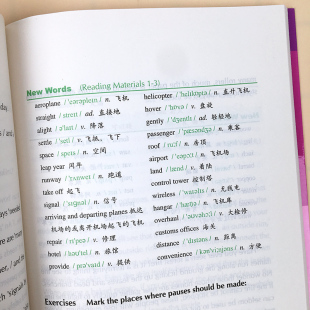 New Words (Reading Materials 1-3)
aeroplane /ˈeərəpleɪn/ n. 飞机
straight /streɪt/ ad. 直接地
alight /əˈlaɪt/ v. 降落
settle /ˈsetl/ v. 飞机，下下
space /speɪs/ n. 空间
leap year 闰年
runway /ˈrʌnweɪ/ n. 跑道
take off 起飞
signal /ˈsɪɡnəl/ n. 信号
arriving and departing planes 抵达
机场的或离开机场起飞的飞机
repair /rɪˈpeə/ v. 修理
hotel /həʊˈtel/ n. 旅馆
provide /prəˈvaɪd/ v. 提供
helicopter /ˈhelɪkɒptə/ n. 直升飞机
hover /ˈhɒvə/ v. 盘旋
gently /ˈdʒentlɪ/ ad. 轻轻地
passenger /ˈpæsəndʒə/ n. 乘客
roof /ruːf/ n. 房顶
airport /ˈeəpɔːt/ n. 飞机场
land /lænd/ v. 着陆
control tower 控制塔
wireless /ˈwaɪəlɪs/ n. 无线电
hangar /ˈhæŋə/ n. 飞机库
overhaul /ˈəʊvəhɔːl/ v. 大检修
customs offices 海关
distance /ˈdɪstəns/ n. 距离
convenience /kənˈviːnɪəns/ n. 方便
Exercises Mark the places where pauses should be made: